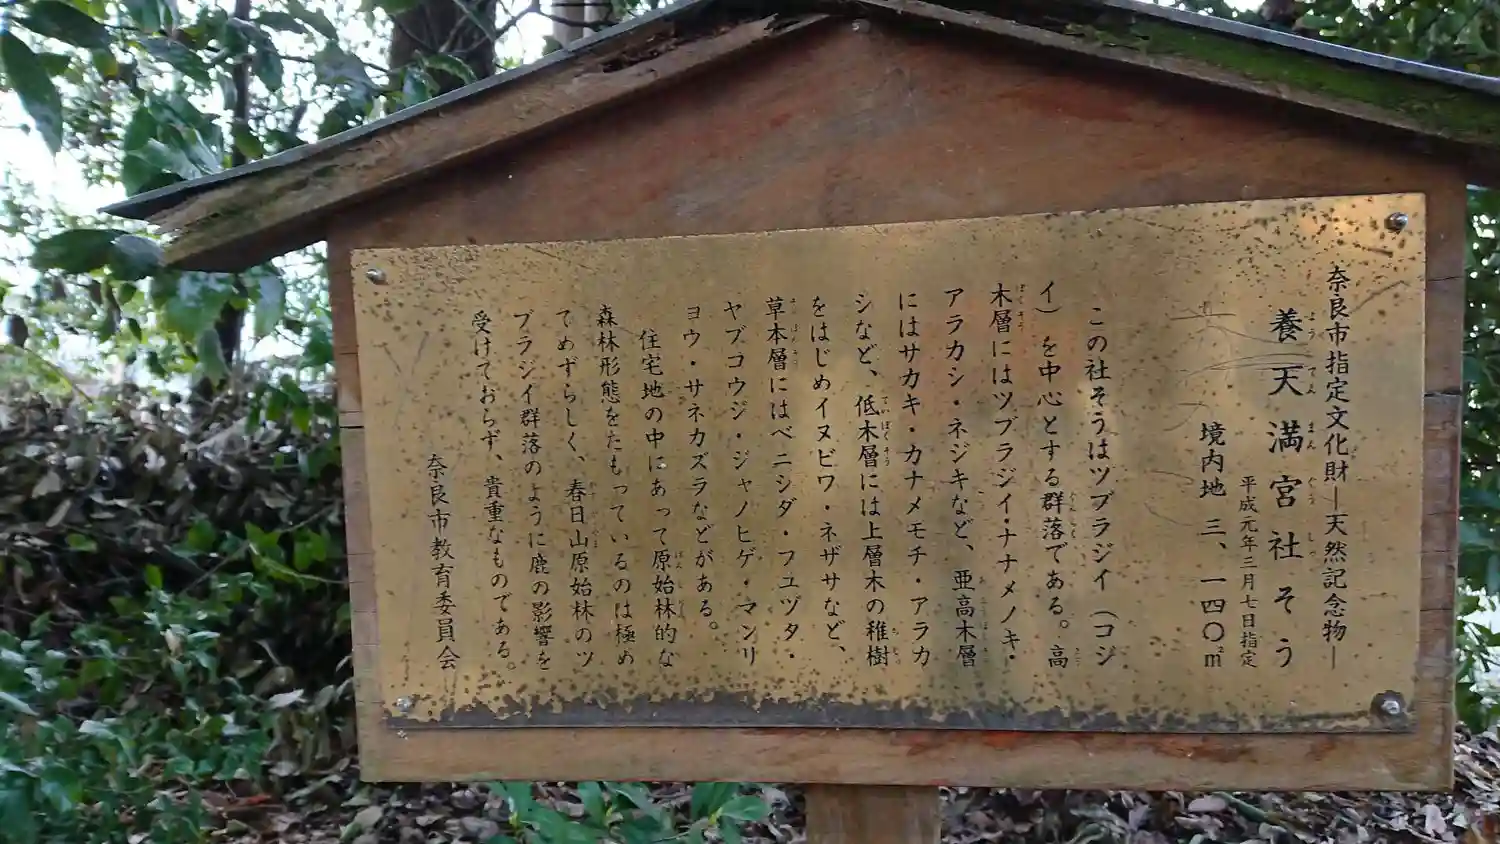 奈良市指定文化財―天然記念物―
養天満宮社そう
平成元年三月七日指定
境内地 三、一四〇㎡
この社そうはツブラジイ（コジ
イ）を中心とする群落である。高
木層にはツブラジイ・ナナメノキ・
アラカシ・ネジキなど、亜高木層
にはサカキ・カナメモチ・アラカ
シなど、低木層には上層木の稚樹
をはじめイヌビワ・ネザサなど、
草本層にはベニシダ・フユヅタ・
ヤブコウジ・ジャノヒゲ・マンリ
ヨウ・サネカズラなどがある。
住宅地の中にあって原始林的な
森林形態をたもっているのは極め
てめずらしく、春日山原始林のツ
ブラジイ群落のように鹿の影響を
受けておらず、貴重なものである。
奈良市教育委員会